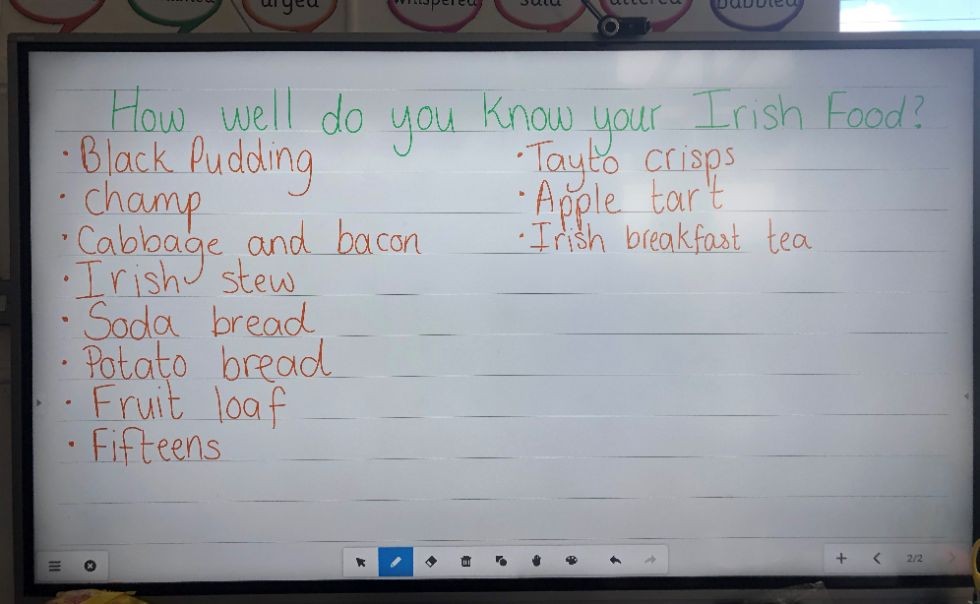 urged
whispered
said
uttered
babbled
How well do you know your Irish Food?
• Black Pudding
• Champ
• Cabbage and bacon
• Irish stew
• Soda bread
• Potato bread
• Fruit loaf
• Fifteens
• Tayto crisps
• Apple tart
• Irish breakfast tea
2/2